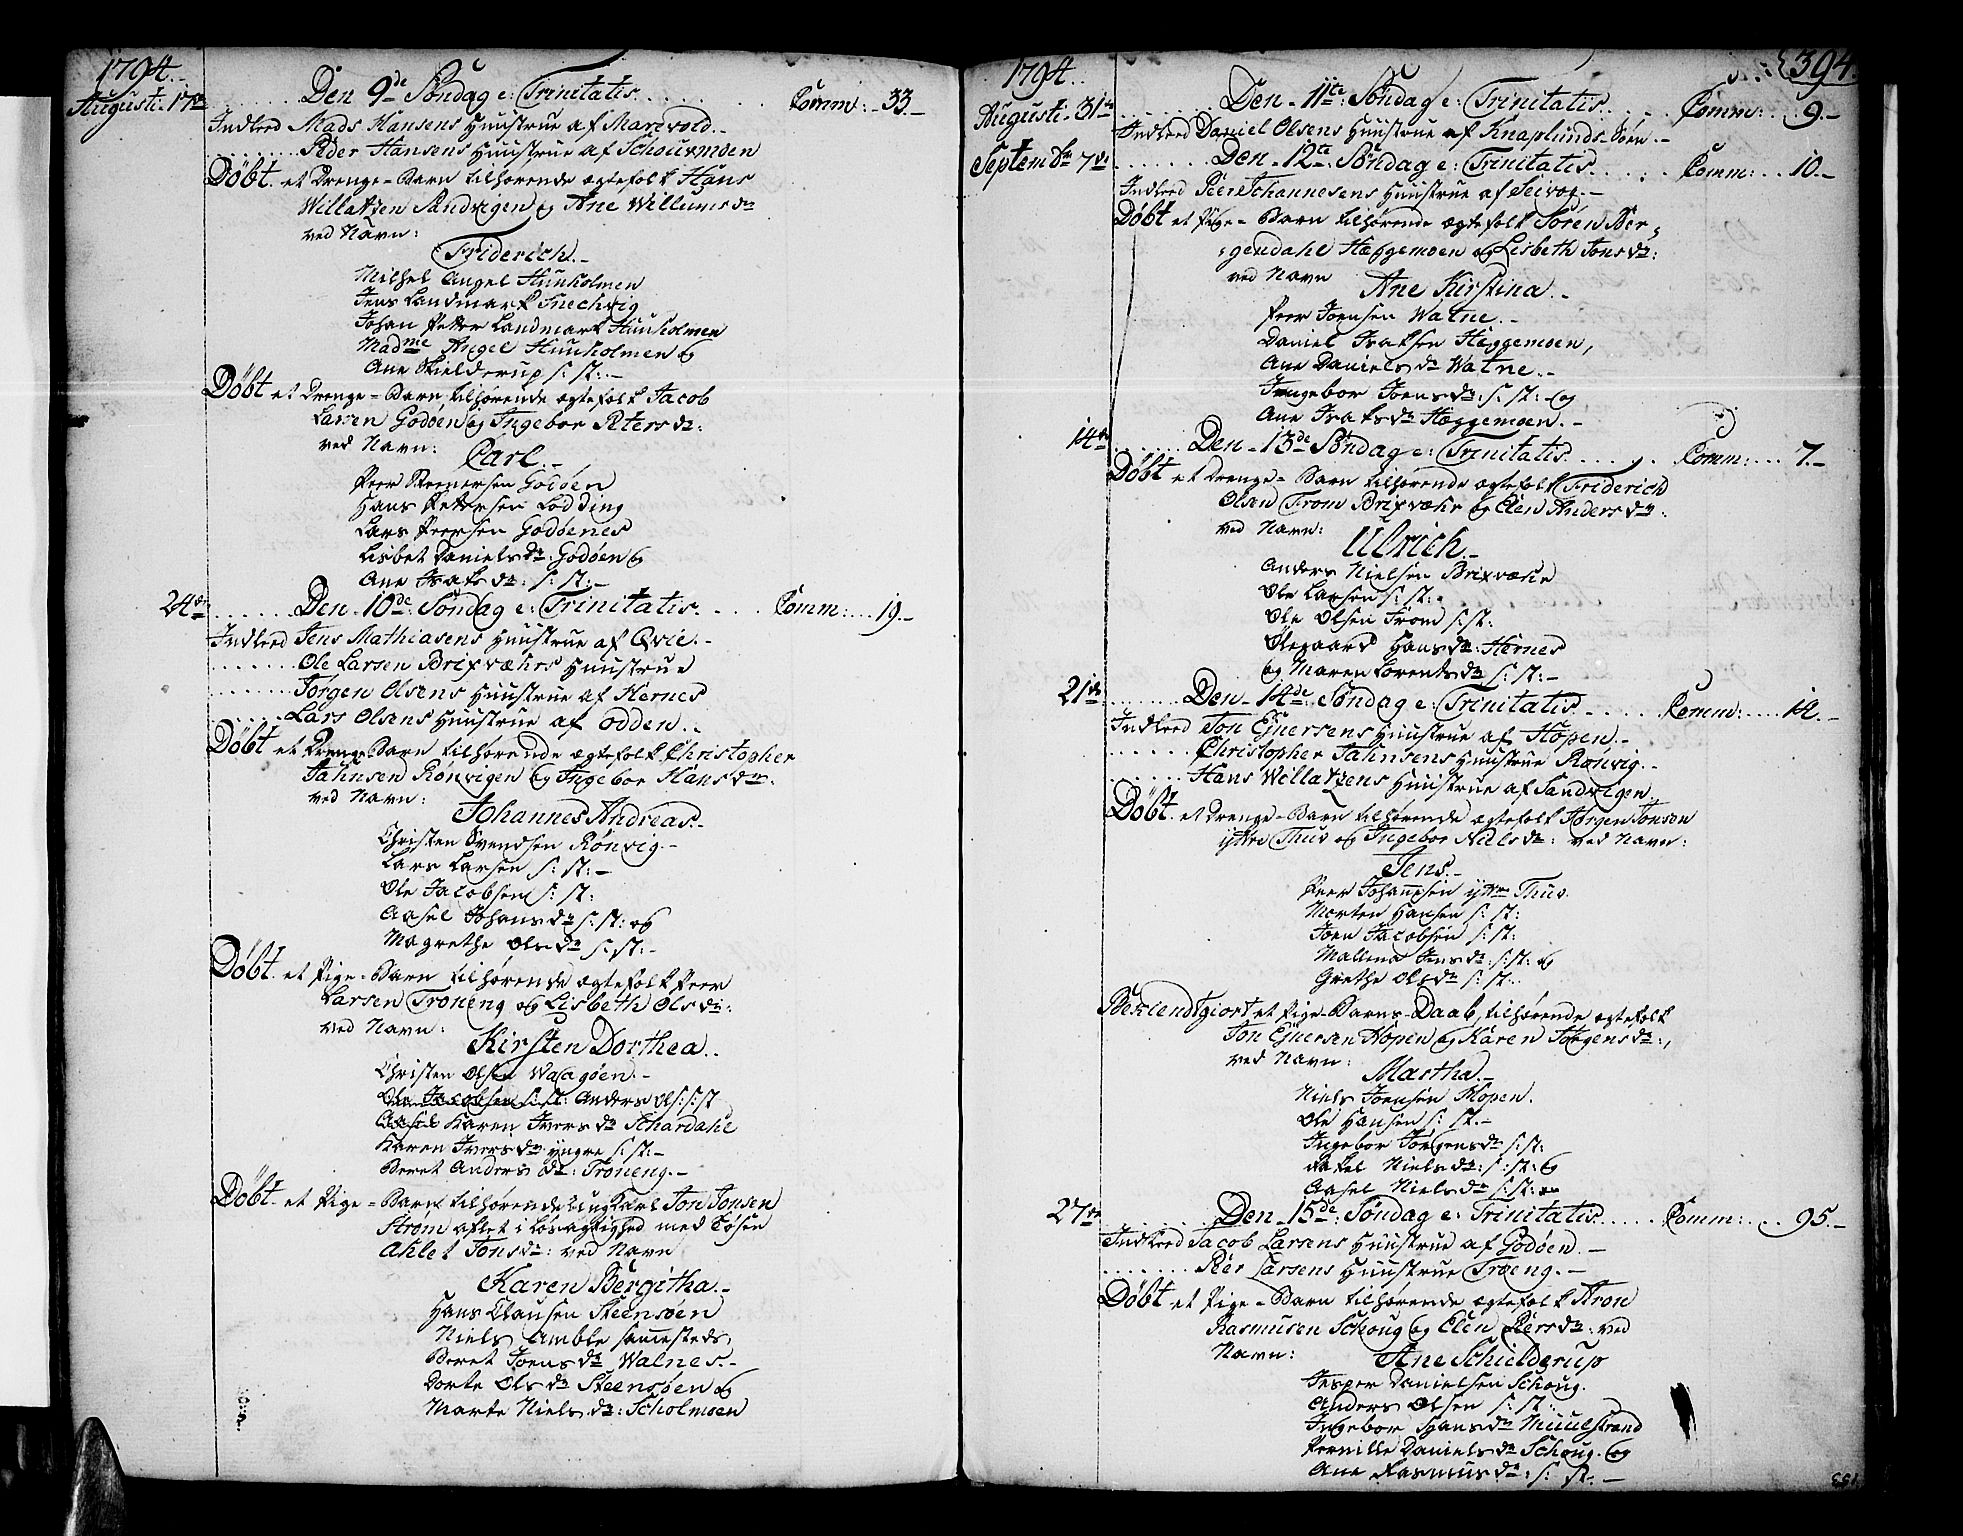 1794.
Augusti 17de ...... Den 9de Søndag e: Trinitatis ...... Comm: 33.
Indleed Mads Hansens Huustrue af Marevold.
........ Peder Hansens Huustrue af Schoursmoen
Døbt et Drenge-Barn tilhørende ægtefolk Hans
Willatzen Sandvigen og Ane Willumsdr
ved Navn:
Friderich.
Michel Angel Huusholmen
Jens Landmark Snechvig
Johan Petter Landmark Huusholmen
Madme Angel Huusholmen og
Ane Skielderup s: st:
Døbt et Drenge-Barn tilhørende ægtefolk Jacob
Larsen Godøen og Ingebor Petersdr:
ved Navn:
Carl.
Peer Steenersen Godøen
Hans Pettersen Lødding
Lars Peersen Godøenes
Lisbet Danielsdr: Godøen og
Ane Isaksdr: s: st:
24de ...... Den 10de Søndag e: Trinitatis .... Comm: .... 19.
Indleed Jens Mathiasens Huustrue af Qvie.
....... Ole Larsen Brixværs Huustrue
....... Jørgen Olsens Huustrue af Hernes
....... Lars Olsens Huustrue af Odden.
Døbt et Drenge Barn tilhørende ægtefolk Christopher
Jahnsen Rønvigen og Ingebor Hansdr:
ved Navn:
Johannes Andreas.
Christen Svendsen Rønvig.
Lars Larsen s: st:
Ole Jacobsen s: st:
Aasel Johansdr s: st: og
Magrethe Olsdr s: st:
Døbt et Pige-Barn tilhørende ægtefolk Peer
Larsen Troneng og Lisbeth Olsdr:
ved Navn:
Kirsten Dorthea.
Christen Olsen Waagøen.
Ole Jacobsen s: st: Anders Ols: s: st
Aasel Karen Iversdr Schardahl
Karen Iversdr: yngre s: st:
Beret Andersdr: Troneng.
Døbt et Pige-Barn tilhørende ung Karl Jon Jonsen
Strøm aflet i Løsagtighed med Tøsen
Ahlet Jonsdr: ved Navn
Karen Bergitha.
Hans Clausen Steensøen
Niels Amble sammesteds
Beret Joensdr Walnes.
Dorte Olsdr Steensøen og
Marte Nielsdr: Scholmoen
1794. 394.
Augusti 31te ...... Den 11te Søndag e: Trinitatis ..... Comm: ... 9.
Indleed Daniel Olsens Huustrue af Knaplunds-Øen.
Septembr 7de ....... Den 12te Søndag e: Trinitatis ..... Comm: ... 10.
Indleed Peer Johannesens Huustrue af Seivog.
Døbt et Pige-Barn tilhørende ægtefolk Søren Ber-
gendahl Heggemoen og Lisbeth Jonsdr:
ved Navn
Ane Kirstina.
Peer Joensen Watne.
Daniel Isaksen Heggemoen,
Ane Danielsdr Watne.
Ingebor Joensdr: s: st: og
Ane Isaksdr Heggemoen.
14de ...... Den 13de Søndag e: Trinitatis ...... Comm: .... 7.
Døbt et Drenge-Barn tilhørende ægtefolk Friderich
Olsen From Brixvær og Elen Andersdr:
ved Navn:
Ulrich.
Anders Nielsen Brixvær
Ole Larsen s: st:
Ole Olsen From s: st:
Olegaard Hansdr: Hernes
og Maren Lorentsdr s: st:
21de ....... Den 14de Søndag e: Trinitatis ..... Comm: .... 12.
Indleed Jon Ejnersens Huustrue af Hopen.
....... Christopher Jahnsens Huustrue Rønvig.
....... Hans Willatzens Huustrue af Sandvigen.
Døbt et Drenge-Barn tilhørende ægtefolk Jørgen Jonsen
ytre Thus og Ingebor Nielsdr: ved Navn:
Jens.
Peer Johannesen ytre Thus
Morten Hansen s: st:
Joen Jacobsen s: st:
Mallena Jensdr: s: st: og
Grethe Olsdr s: st:
Beklendtgiort et Pige-Barns-Daab, tilhørende ægtefolk
Jon Ejnersen Hopen og Karen Jørgensdr:,
ved Navn:
Martha.
Niels Joensen Hopen.
Ole Hansen s: st:
Ingebor Jørgensdr s: st:
Nielsdr: s: st: og
Aasel Nielsdr s: st:
27de ....... Den 15de Søndag e: Trinitatis ..... Comm: ... 95.
Indleed Jacob Larsens Huustrue af Godøen.
....... Peer Larsens Huustrue Troeng.
Døbt et Pige-Barn tilhørende ægtefolk Aron
Rasmusen Schoug og Elen Peersdr: ved
Navn:
Ane Schielderup
Jesper Danielsen Schoug.
Anders Olsen s: st:
Ingebor Hansdr Muulstrand
Pernille Danielsdr Schoug. og
Ane Rasmusdr: s: st: